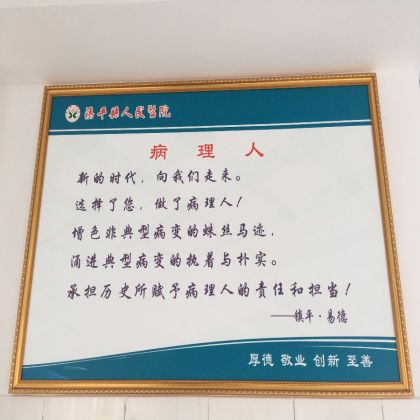 镇平县人民医院
病理人
新的时代，向我们走来。
选择了您，做了病理人！
增色非典型病变的蛛丝马迹，
涌进典型病变的执着与朴实。
承担历史所赋予病理人的责任和担当！
——镇平·易德
厚德 敬业 创新 至善